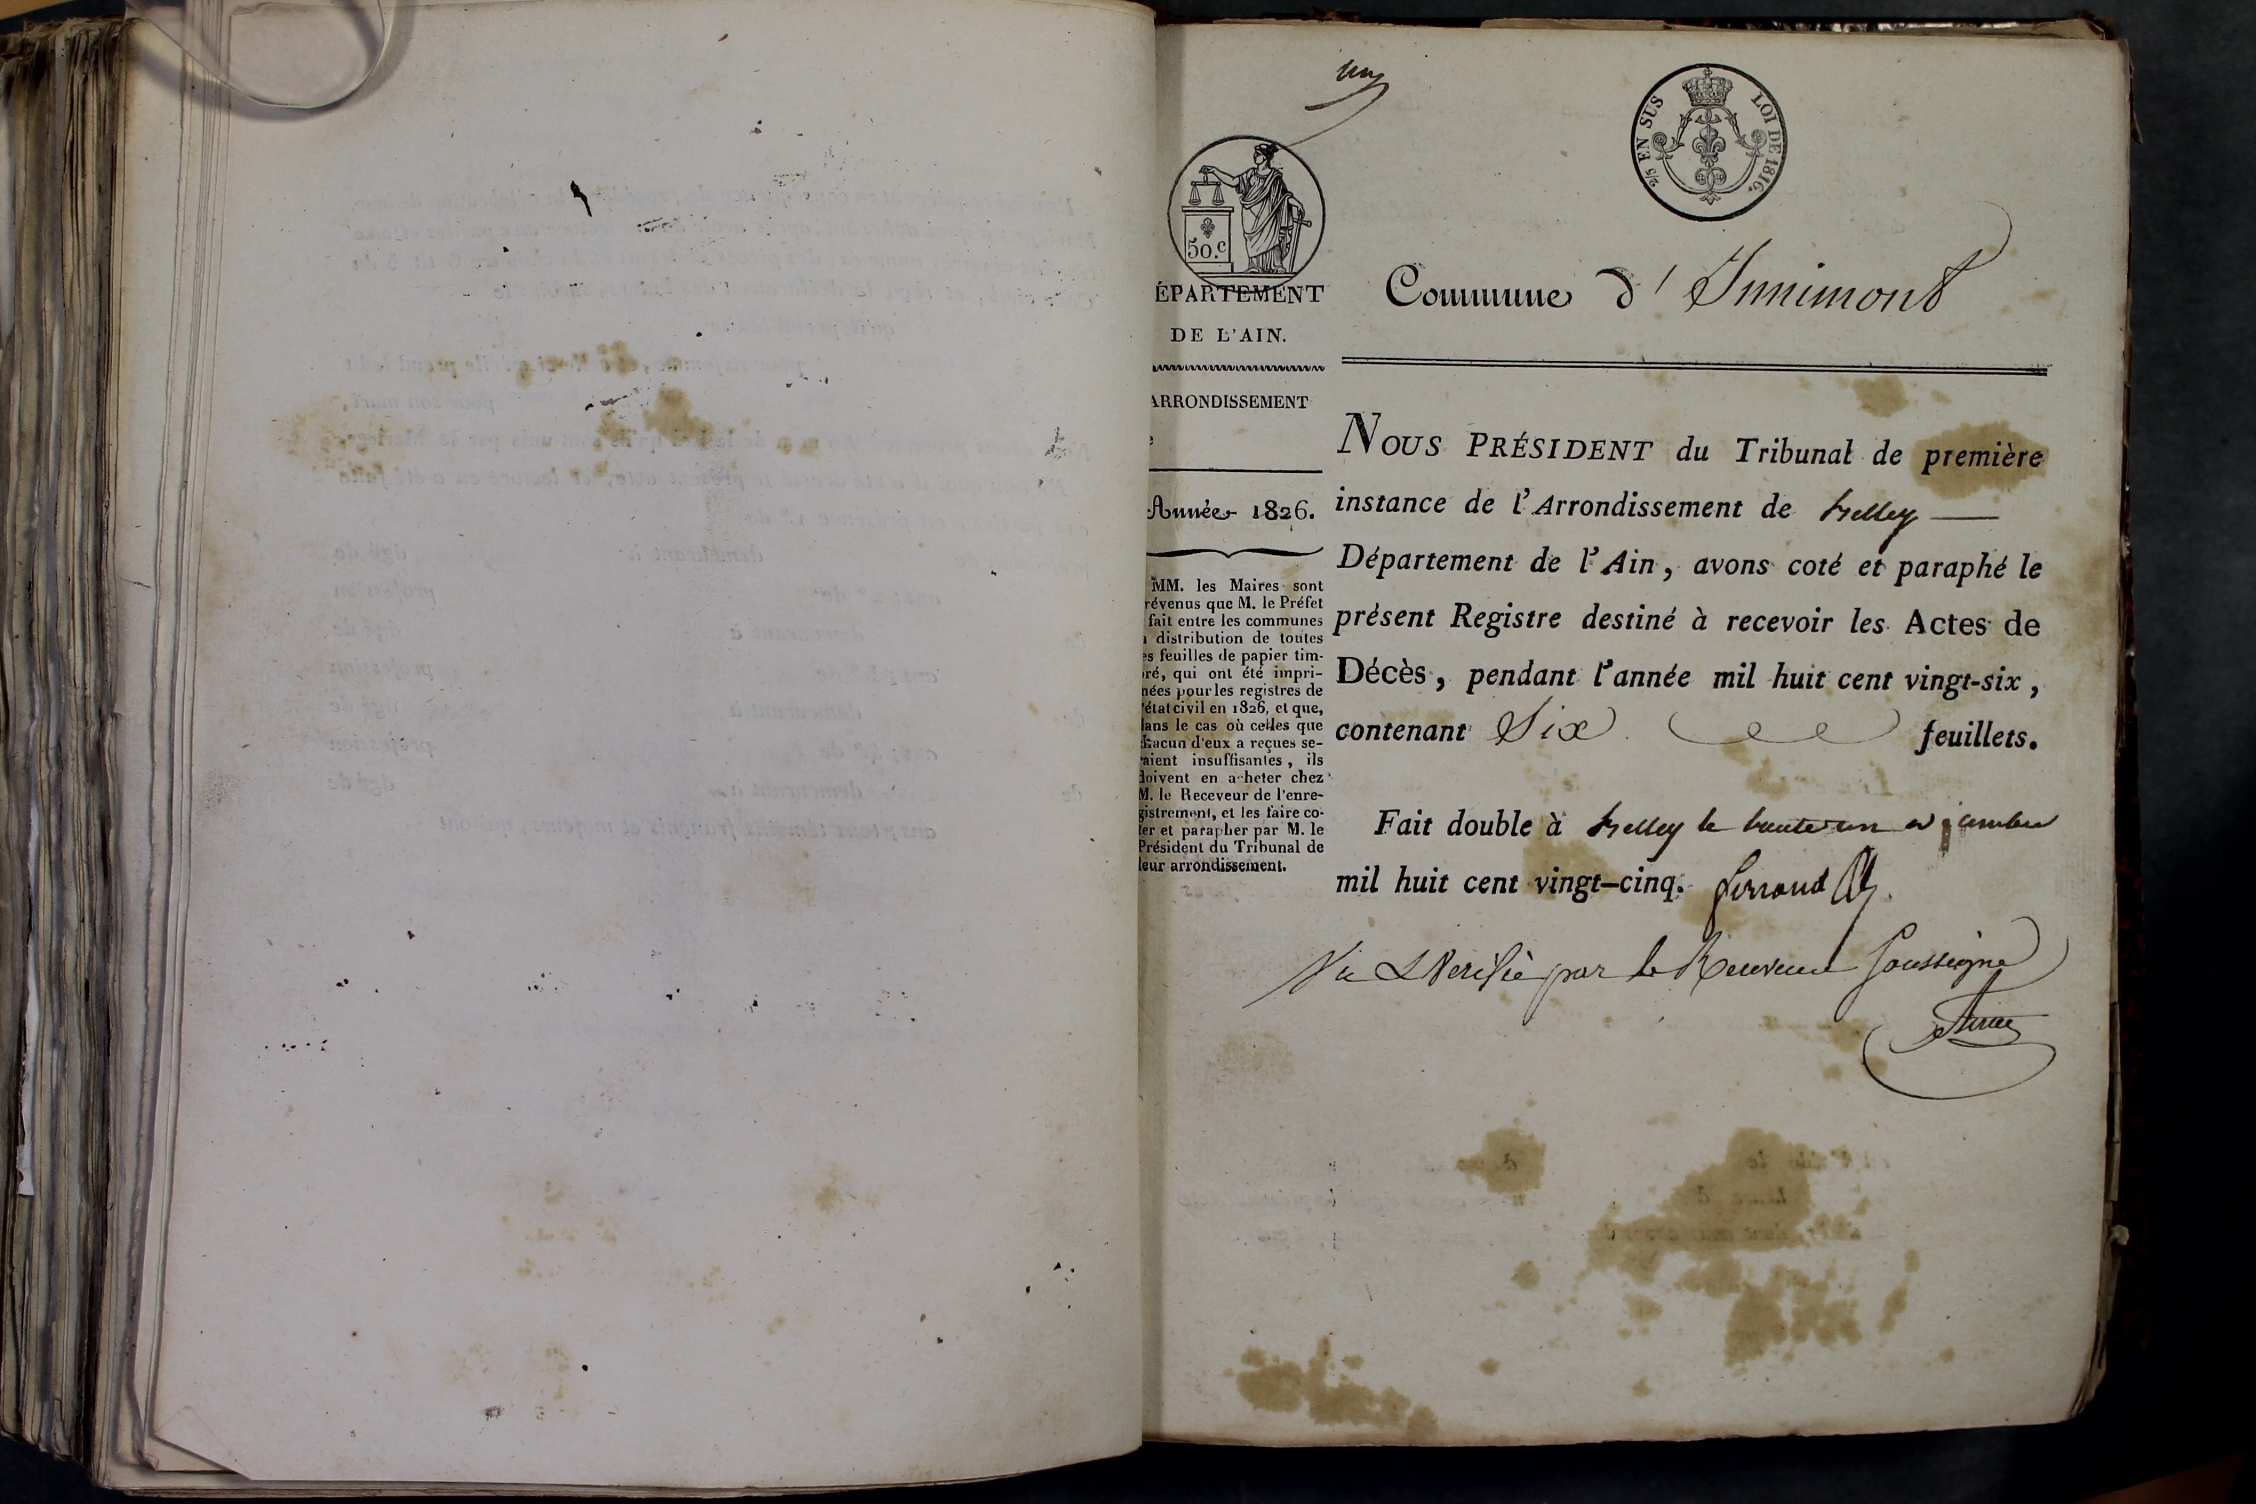 un
2/5 EN SUS LOI DE 1816.
50.c
ÉPARTEMENT
DE L'AIN.
ARRONDISSEMENT
Année 1826.
MM. les Maires sont
révenus que M. le Préfet
fait entre les communes
a distribution de toutes
es feuilles de papier tim-
ré, qui ont été impri-
nées pour les registres de
l'état civil en 1826, et que,
dans le cas où celles que
chacun d'eux a reçues se-
raient insuffisantes, ils
doivent en acheter chez
M. le Receveur de l'enre-
gistrement, et les faire co-
ter et parapher par M. le
Président du Tribunal de
leur arrondissement.
Commune d'Innimont
NOUS PRÉSIDENT du Tribunal de première
instance de l'Arrondissement de Belley
Département de l'Ain, avons coté et paraphé le
présent Registre destiné à recevoir les Actes de
Décès, pendant l'année mil huit cent vingt-six,
contenant Six feuillets.
Fait double à Belley le trente un décembre
mil huit cent vingt-cinq.
Vu & Verifié par le Receveur Soussigné